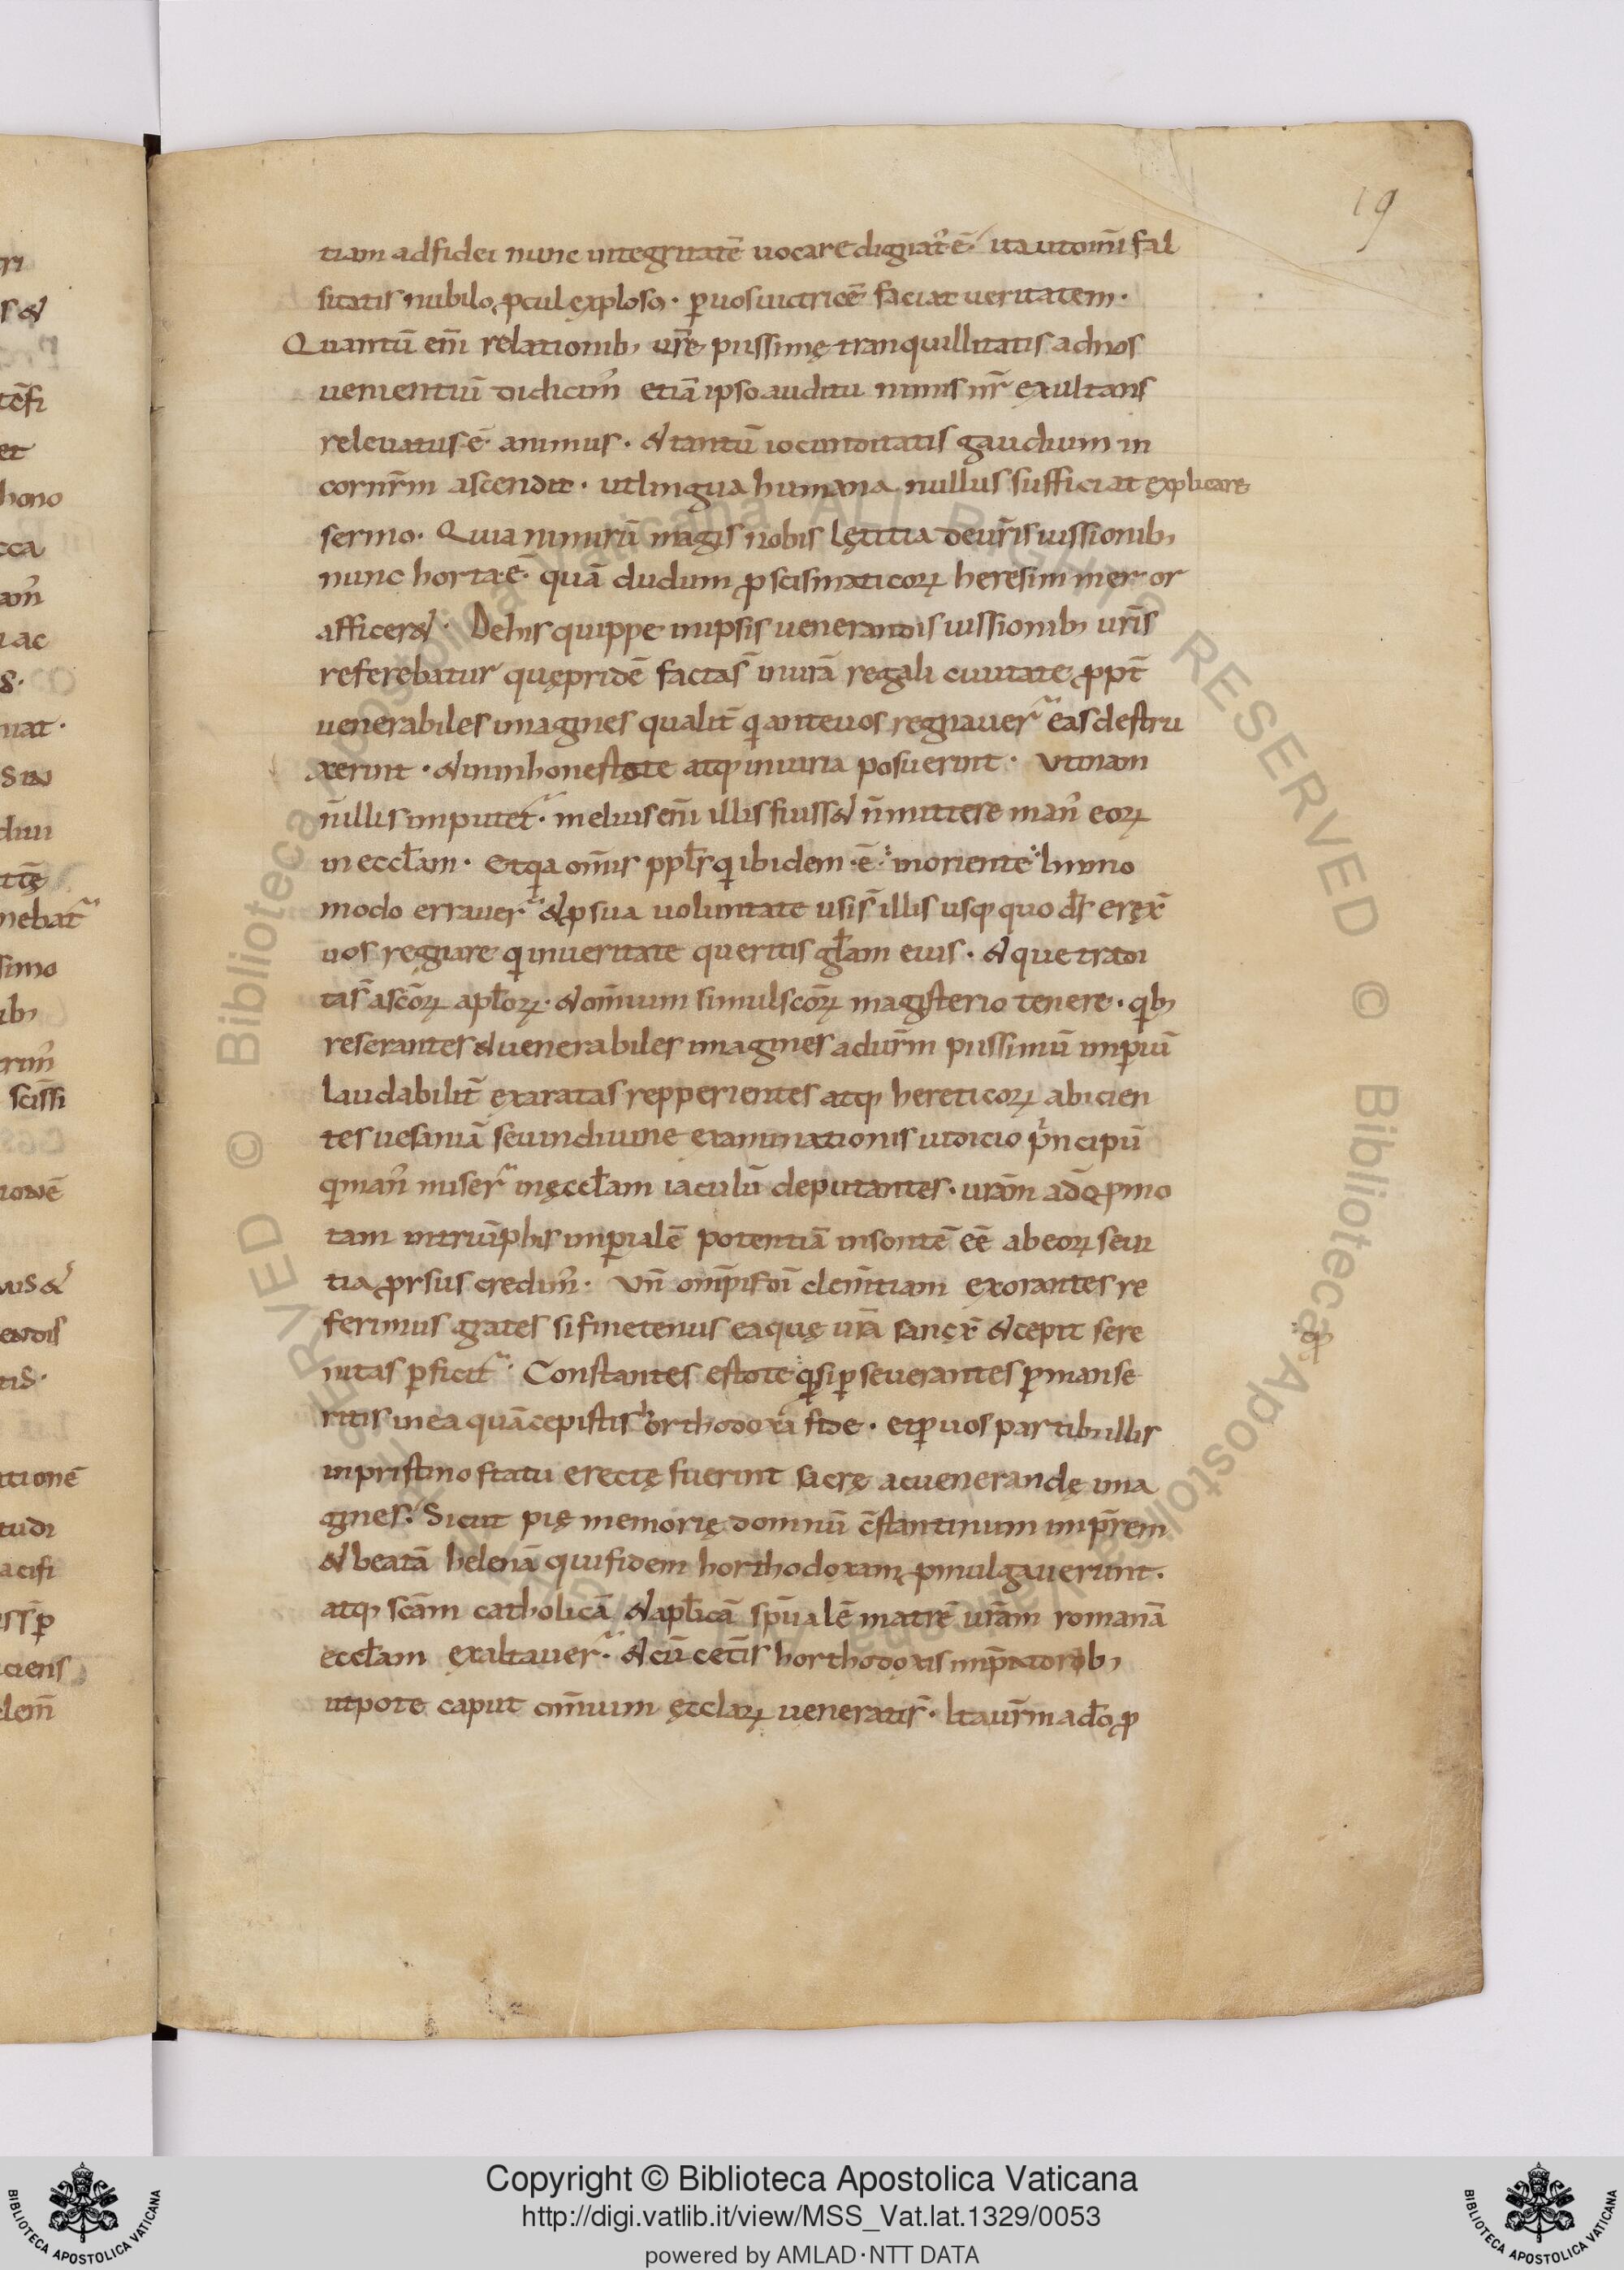 19
tiam adfidei nunc integritatē uocare dignatꝰ ē. ita utom̄i fal
sitatis nubilo ꝓcul exploso. ꝑuosuictricē faciat ueritatem.
Quantū em̄ relationib; ur̄ę piissimę tranquillitatis adnos
uenientiū didicimꝰ etiā ipso auditu nimis nr̄ exultans
releuatus ē animus. & tantū iocunditatis gaudium in
cornr̄m ascendit. utlingua humana nullus sufficiat explicare
sermo. Quia nimirū magis nobis lętitia deur̄is iussionib;
nunc horta ē. quā dudum ꝓ scismaticoꝝ heresim meror
afficer&. Dehis quippe inipsis uenerandis iussionib; ur̄is
referebatur quępridē factas̄ inurā regali ciuitate ꝓpt̄
uenerabiles imagines qualit̄ qi anteuos regnauer̄ eas destru
xerint. & ininhonestate atq; iniuria posuerint. Utinam
n̄illis imputet̄. melius em̄ illis fuiss& n̄mittere manꝰ eoꝝ
in eccl̄am. Etqia om̄is ppl̄s qi ibidem ē inoriente huino
modo errauer̄ & ꝓ sua uoluntate usis̄ illis usq; quo d̄s erex̄
uos regnare qi inueritate queritis gl̄am eius. & que tradi
tas̄ asc̄oꝝ apl̄oꝝ. & om̄ium simulsc̄oꝝ magisterio tenere. qib;
reserantes & uenerabiles imagines adur̄m piissimū imꝑiū
laudabilit̄ exaratas repperientes atq; hereticoꝝ abicien
tes uesaniā seuindiuine examinationis iudicio pincipū
qi manꝰ miser̄ inęccl̄am iaculū deputantes. urām ad̄o ꝓmo
tam intriūphis imꝑialē potentiā insontē ēē abeoꝝ seui
tia ꝓrsus credimꝰ. Un̄ om̄pis d̄i clem̄tiam exorantes re
ferimus grates si finetenus eaquę urā sanęx̄ & cepit sere
nitas ꝑficit̄. Constantes estote qisi ꝑseuerantes ꝑmanse
ritis inea quācepistis horthodoxa fide. etꝑuos partib; illis
inpristino statu erectę fuerint sacrę acuenerandę ima
gines. Sicut pię memorię domnū c̄stantinum imp̄rem
& beatā helenā quifidem horthodoxam ꝓmulgauerunt.
atq; sc̄am catholicā & apl̄icā sp̄ualē matrē urām romanā
eccl̄am exaltauer̄. & cū cet̄is horthodoxis imp̄atorib;
utpote caput om̄ium ęcclaꝝ ueneratis̄. Itaur̄m ad̄o ꝓ
Copyright © Biblioteca Apostolica Vaticana
http://digi.vatlib.it/view/MSS_Vat.lat.1329/0053
powered by AMLAD·NTT DATA
BIBLIOTECA APOSTOLICA VATICANA
BIBLIOTECA APOSTOLICA VATICANA